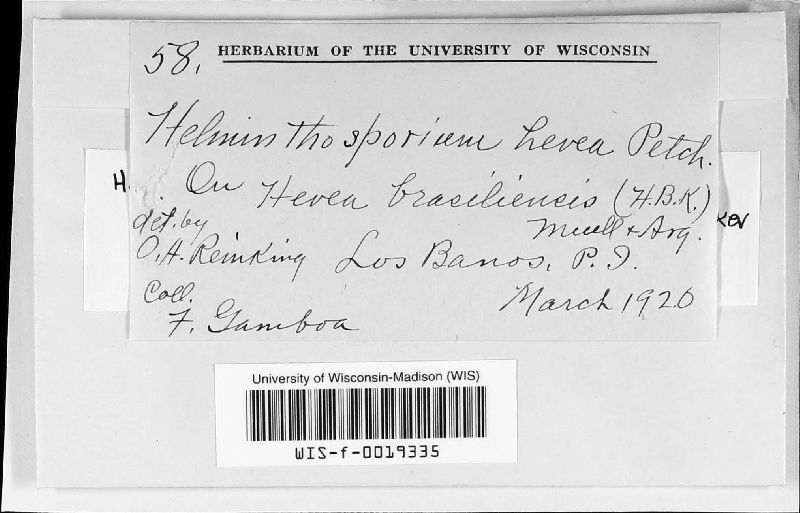 58.
HERBARIUM OF THE UNIVERSITY OF WISCONSIN
Helminthosporium hevea Petch.
On Hevea brasiliensis (H.B.K.)
Muell + Arg.
det. by
O.A. Reinking
Los Banos, P.I.
Coll.
F. Gamboa
March 1920
University of Wisconsin-Madison (WIS)
WIS-f-0019335